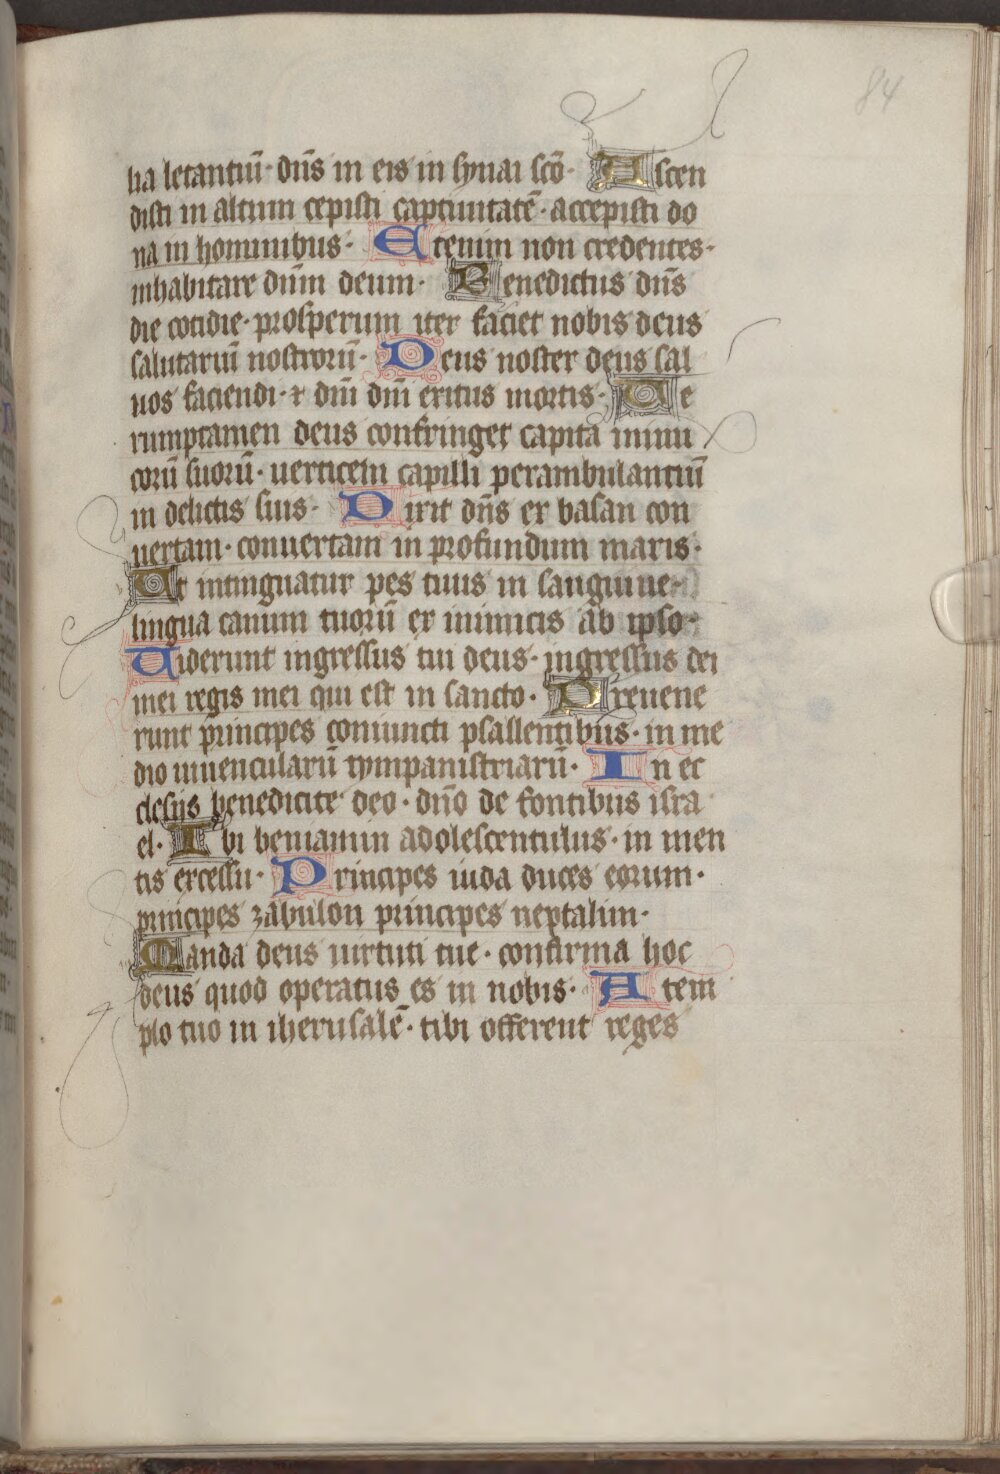 84
lia letantiū· dn̄s in eis in synai scō· Ascen
disti in altum cepisti captiuitatē· accepisti do
na in hominibus· Etenim non credentes·
inhabitare dn̄m deum· Benedictus dn̄s
die cotidie· prosperum iter faciet nobis deus
salutariū nostrorū· Deus noster deus sal
uos faciendi· ⁊ dn̄i dn̄i exitus mortis· Ue
rumptamen deus confringet capita inimi
corū suorū· uerticem capilli perambulantiū
in delictis suis· Dixit dn̄s ex basan con
uertam· conuertam in profundum maris·
Ut intinguatur pes tuus in sanguine·
lingua canum tuorū ex inimicis ab ipso·
Uiderunt ingressus tui deus· ingressus dei
mei regis mei qui est in sancto· Preuene
runt principes coniuncti psallentibus· in me
dio iuuencularū tympanistriarū· In ec
clesijs benedicite deo· dn̄o de fontibus isra
el· Ibi beniamin adolescentulus· in men
tis excessu· Principes iuda duces eorum·
principes zabulon principes neptalim·
Manda deus uirtuti tue· confirma hoc
deus quod operatus es in nobis· A tem
plo tuo in iherusalē· tibi offerent reges